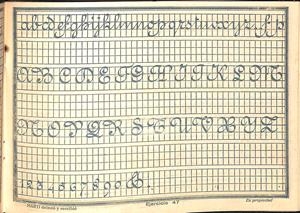 abcdefghijklmnñopqrstuvxyz
ABCDEFGHIJKLM
NOPQRSTUVXYZ
1234567890
MARTI delineó y escribió Ejercicio 47 Es propiedad